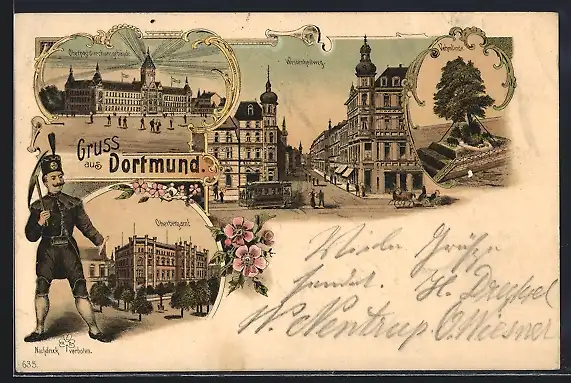 Oberpostdirectionsgebäude
Westenhellweg
Vehmlinde
Gruss
aus Dortmund.
Oberbergamt
Viele Grüsse
sendet. H. Dreyssel
W. Nentrup O. Wiesner
Nachdruck verboten.
635